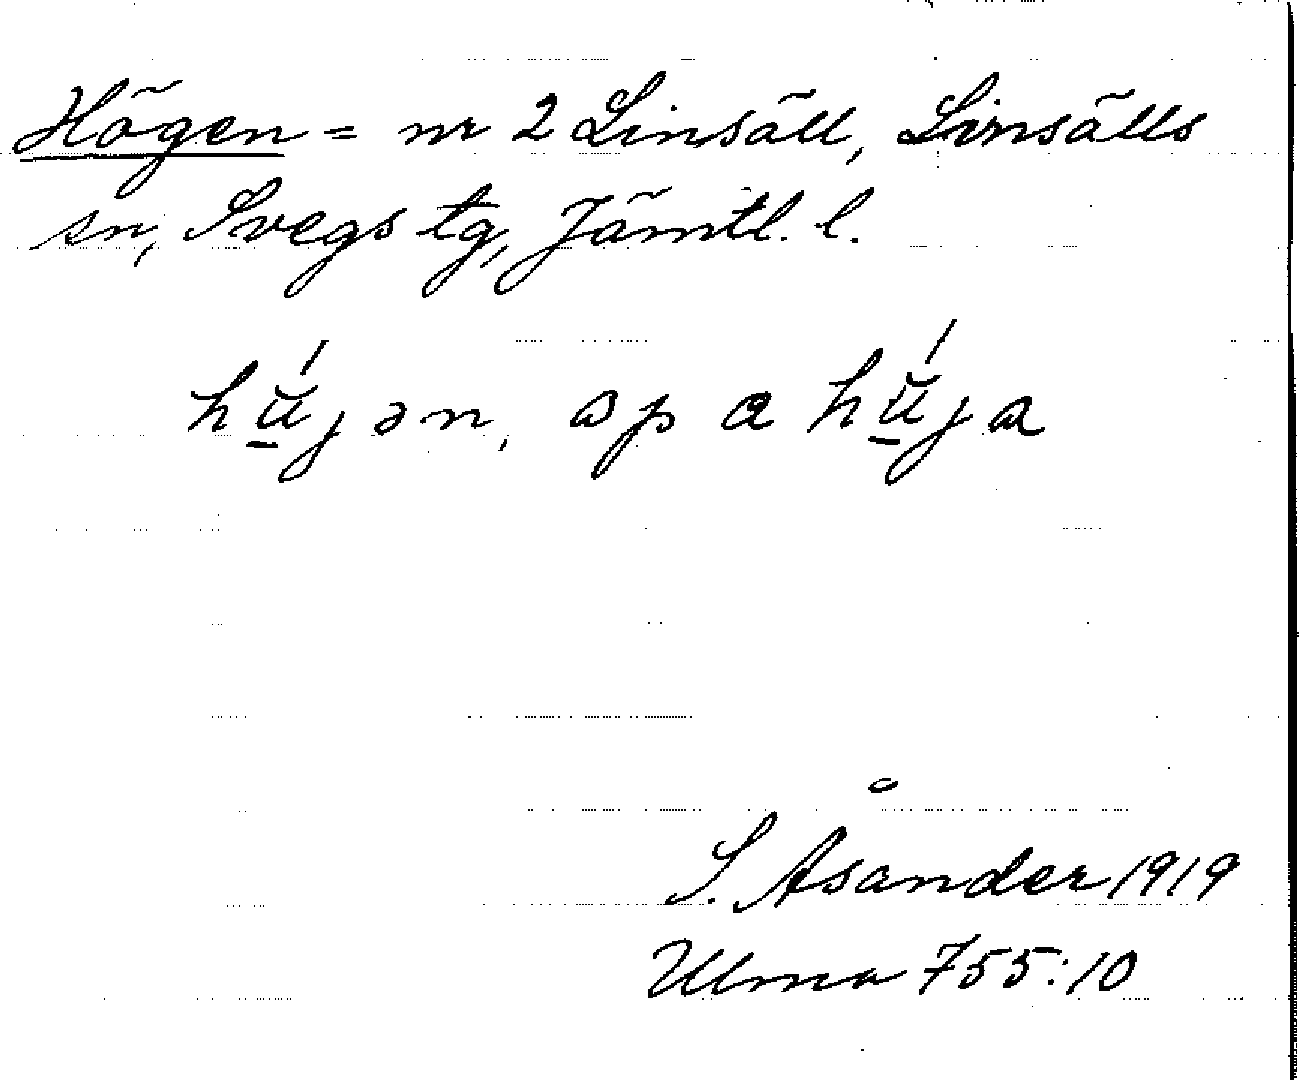 Högen = nr 2 Linsäll, Linsälls
sn, Svegs tg, Jämtl. l.
hǔ̲́jən, ɒp a hǔ̲́ja
S. Åsander 1919
Ulma 755:10